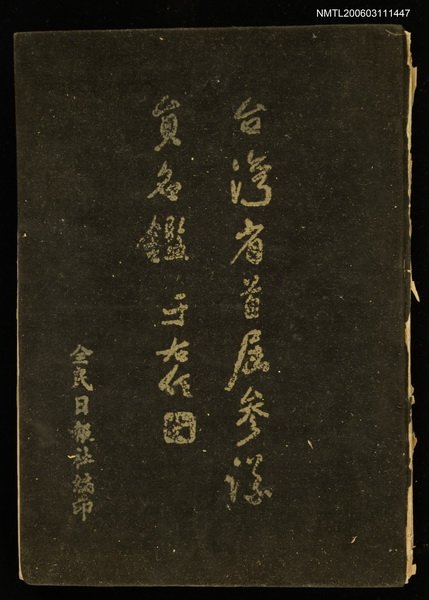 NMTL200603111447
台灣省首屆參議
員名鑑 于右任
全民日報社編印